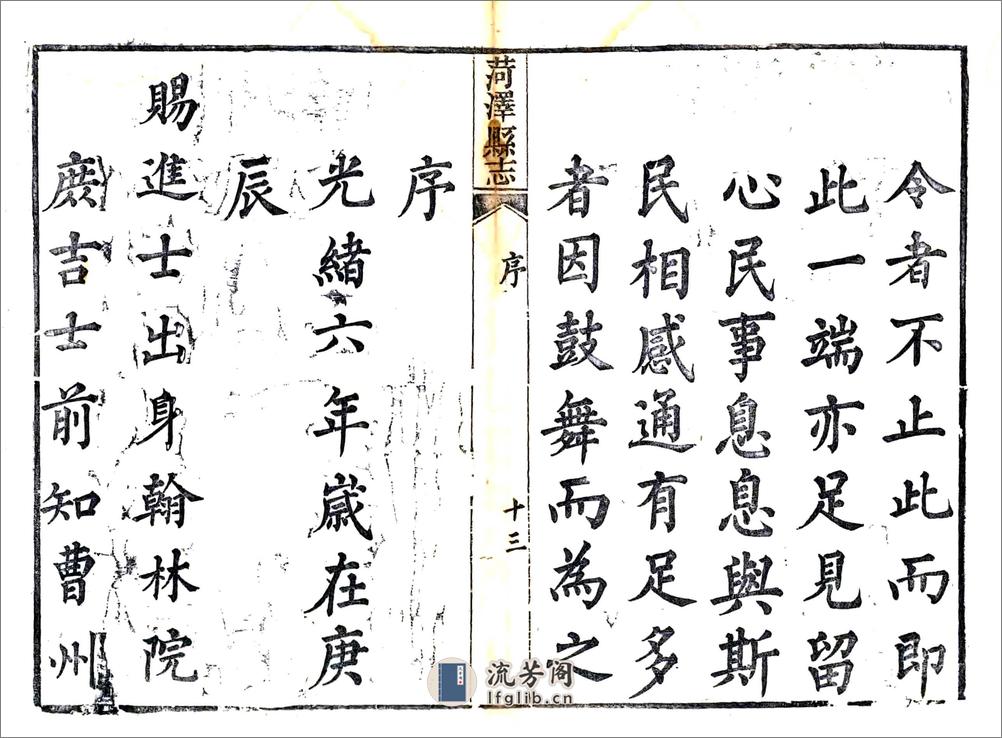 令者不止此而即
此一端亦足見留
心民事息息與斯
民相感通有足多
者因鼓舞而為之
菏澤縣志
序
十三
序
光緒六年歲在庚
辰
賜進士出身翰林院
庶吉士前知曹州
流芳阁
lfglib.cn